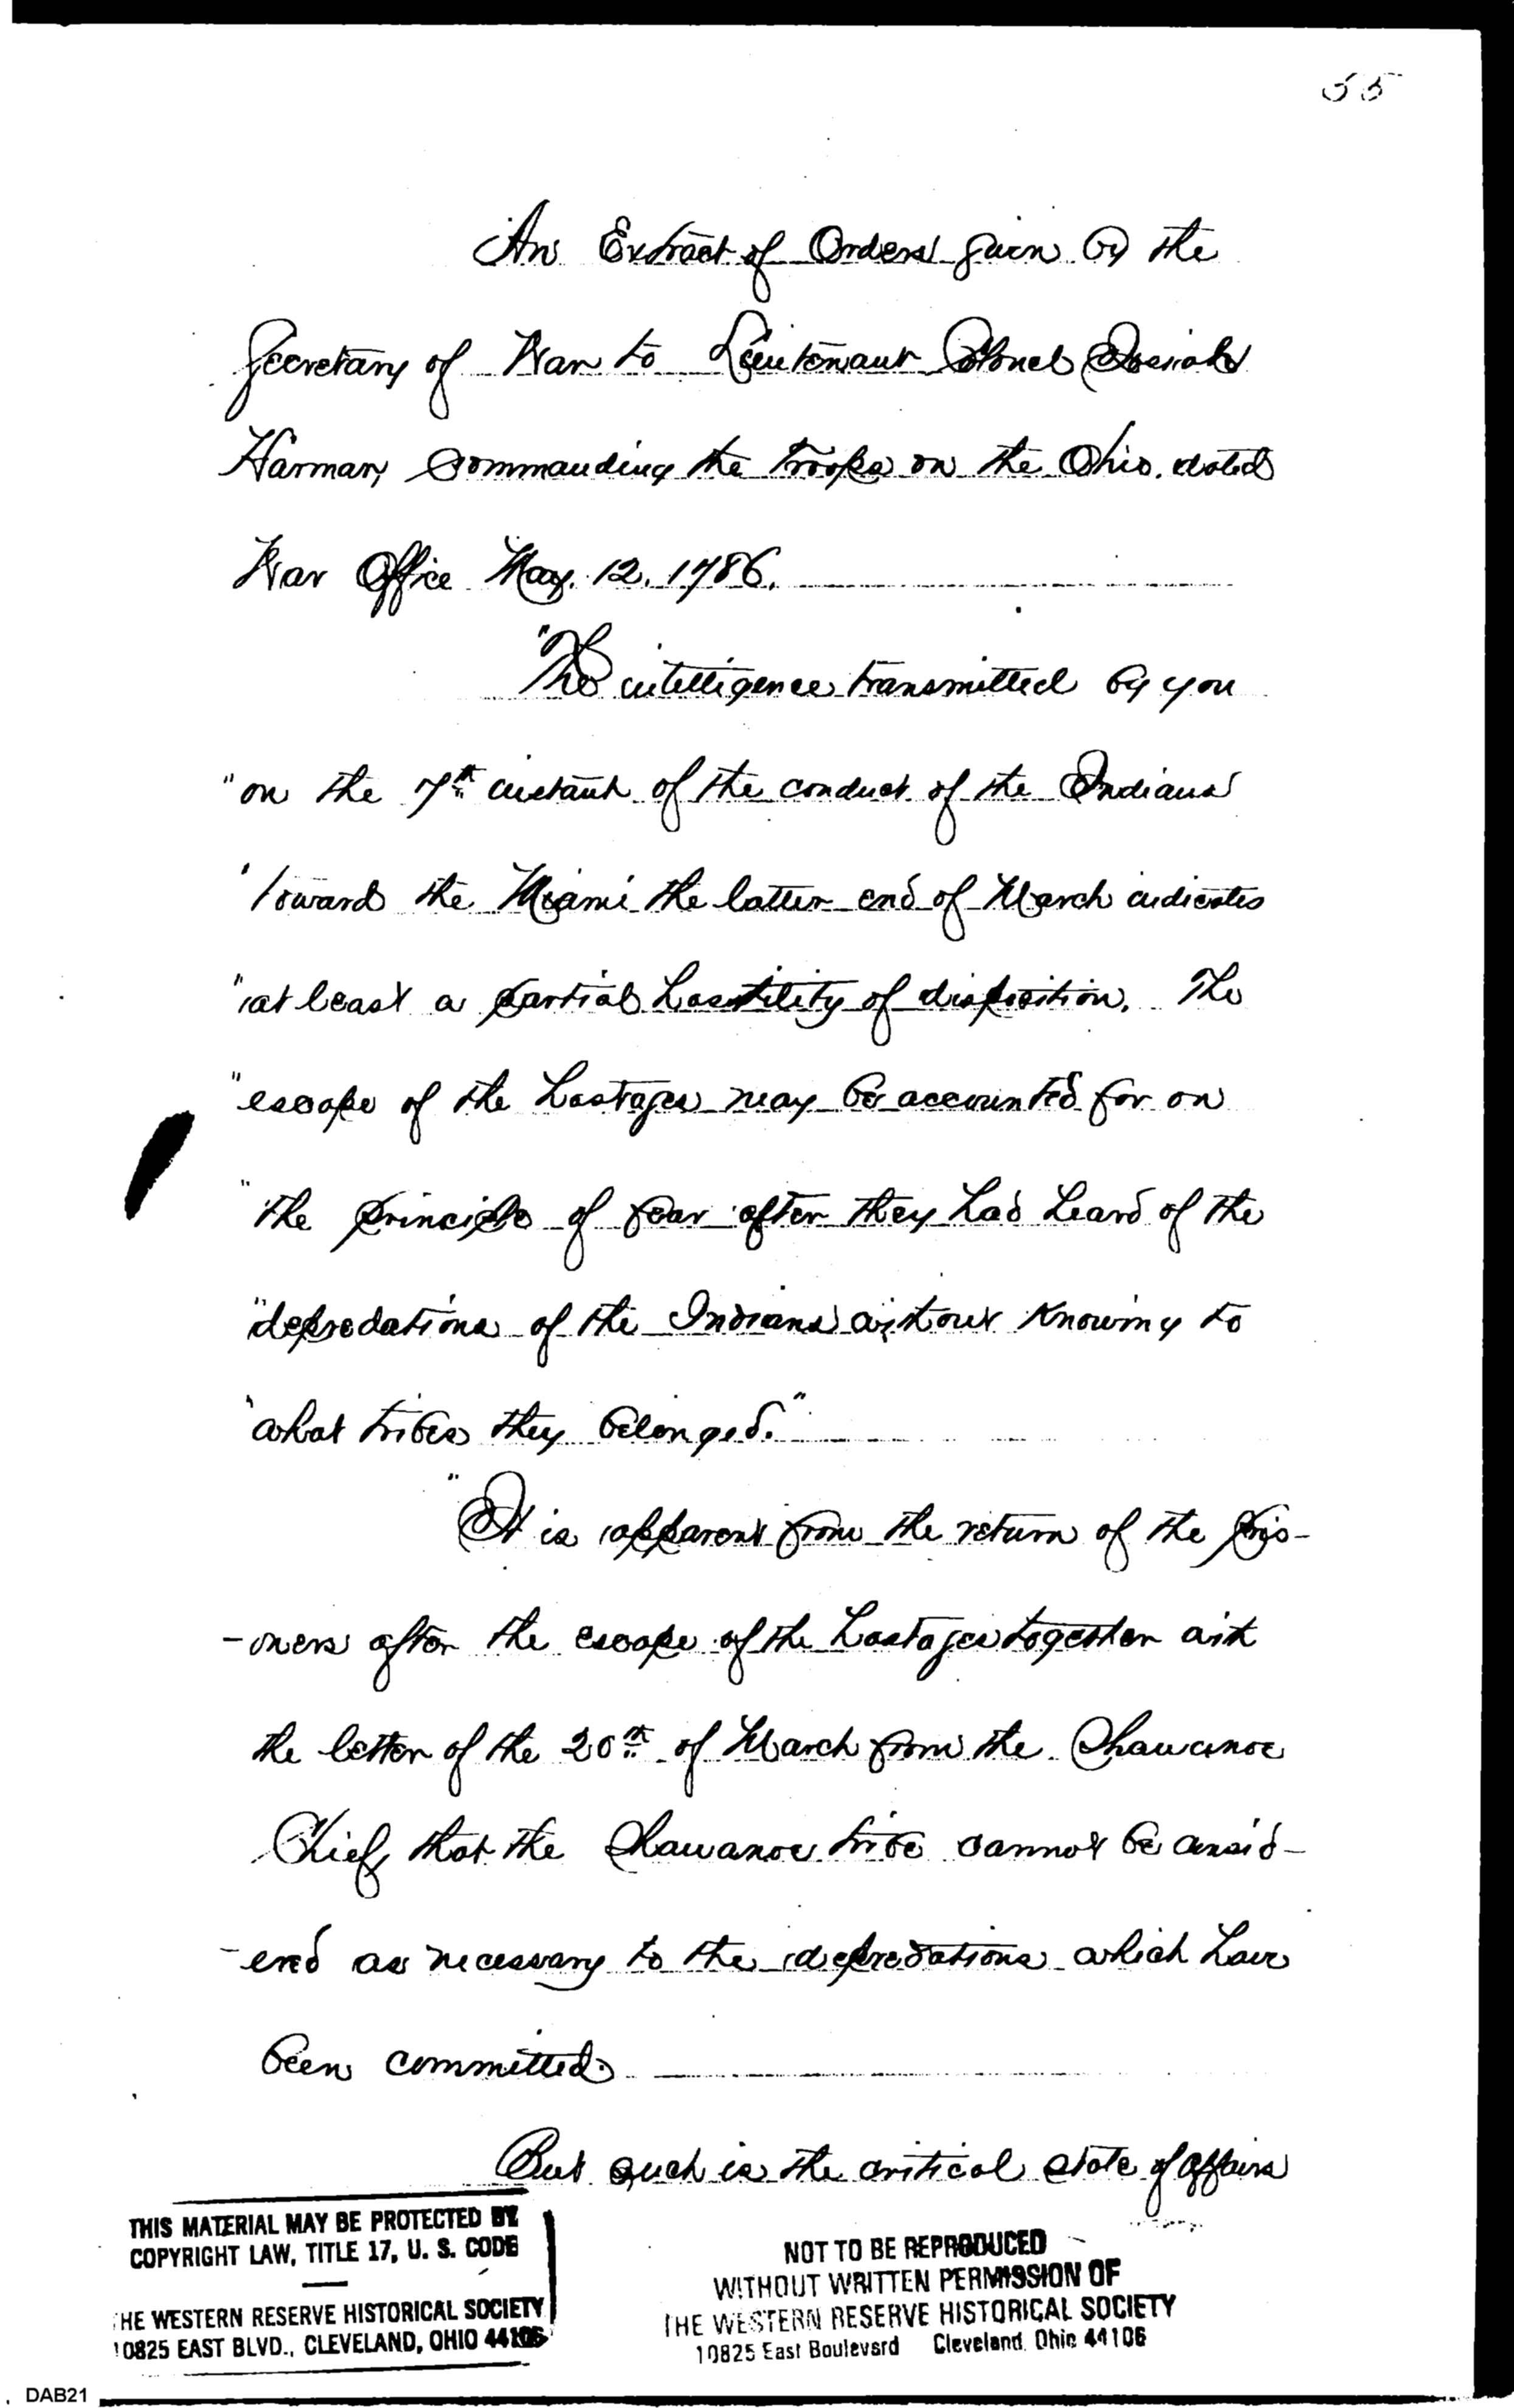 55
An Extract of Orders given by the
Secretary of War to Lieutenant Colonel Josiah
Harmar, commanding the troops on the Ohio. dated
War Office May. 12. 1786.
"The intelligence transmitted by you
"on the 7th instant of the conduct of the Indians
"toward the Miami the latter end of March indicates
"at least a partial hostility of disposition. The
"escape of the hostages may be accounted for on
"the principle of fear after they had heard of the
"depredations of the Indians without knowing to
"what tribes they belonged."
"It is apparent from the return of the pris-
-oners after the escape of the hostages together with
the letter of the 20th of March from the Shawanoe
Chief, that the Shawanoe tribe cannot be consid-
-ered as necessary to the depredations which have
been committed.
But such is the critical state of affairs
THIS MATERIAL MAY BE PROTECTED BY
COPYRIGHT LAW, TITLE 17, U. S. CODE
THE WESTERN RESERVE HISTORICAL SOCIETY
10825 EAST BLVD., CLEVELAND, OHIO 44106
NOT TO BE REPRODUCED
WITHOUT WRITTEN PERMISSION OF
THE WESTERN RESERVE HISTORICAL SOCIETY
10825 East Boulevard Cleveland, Ohio 44106
DAB21